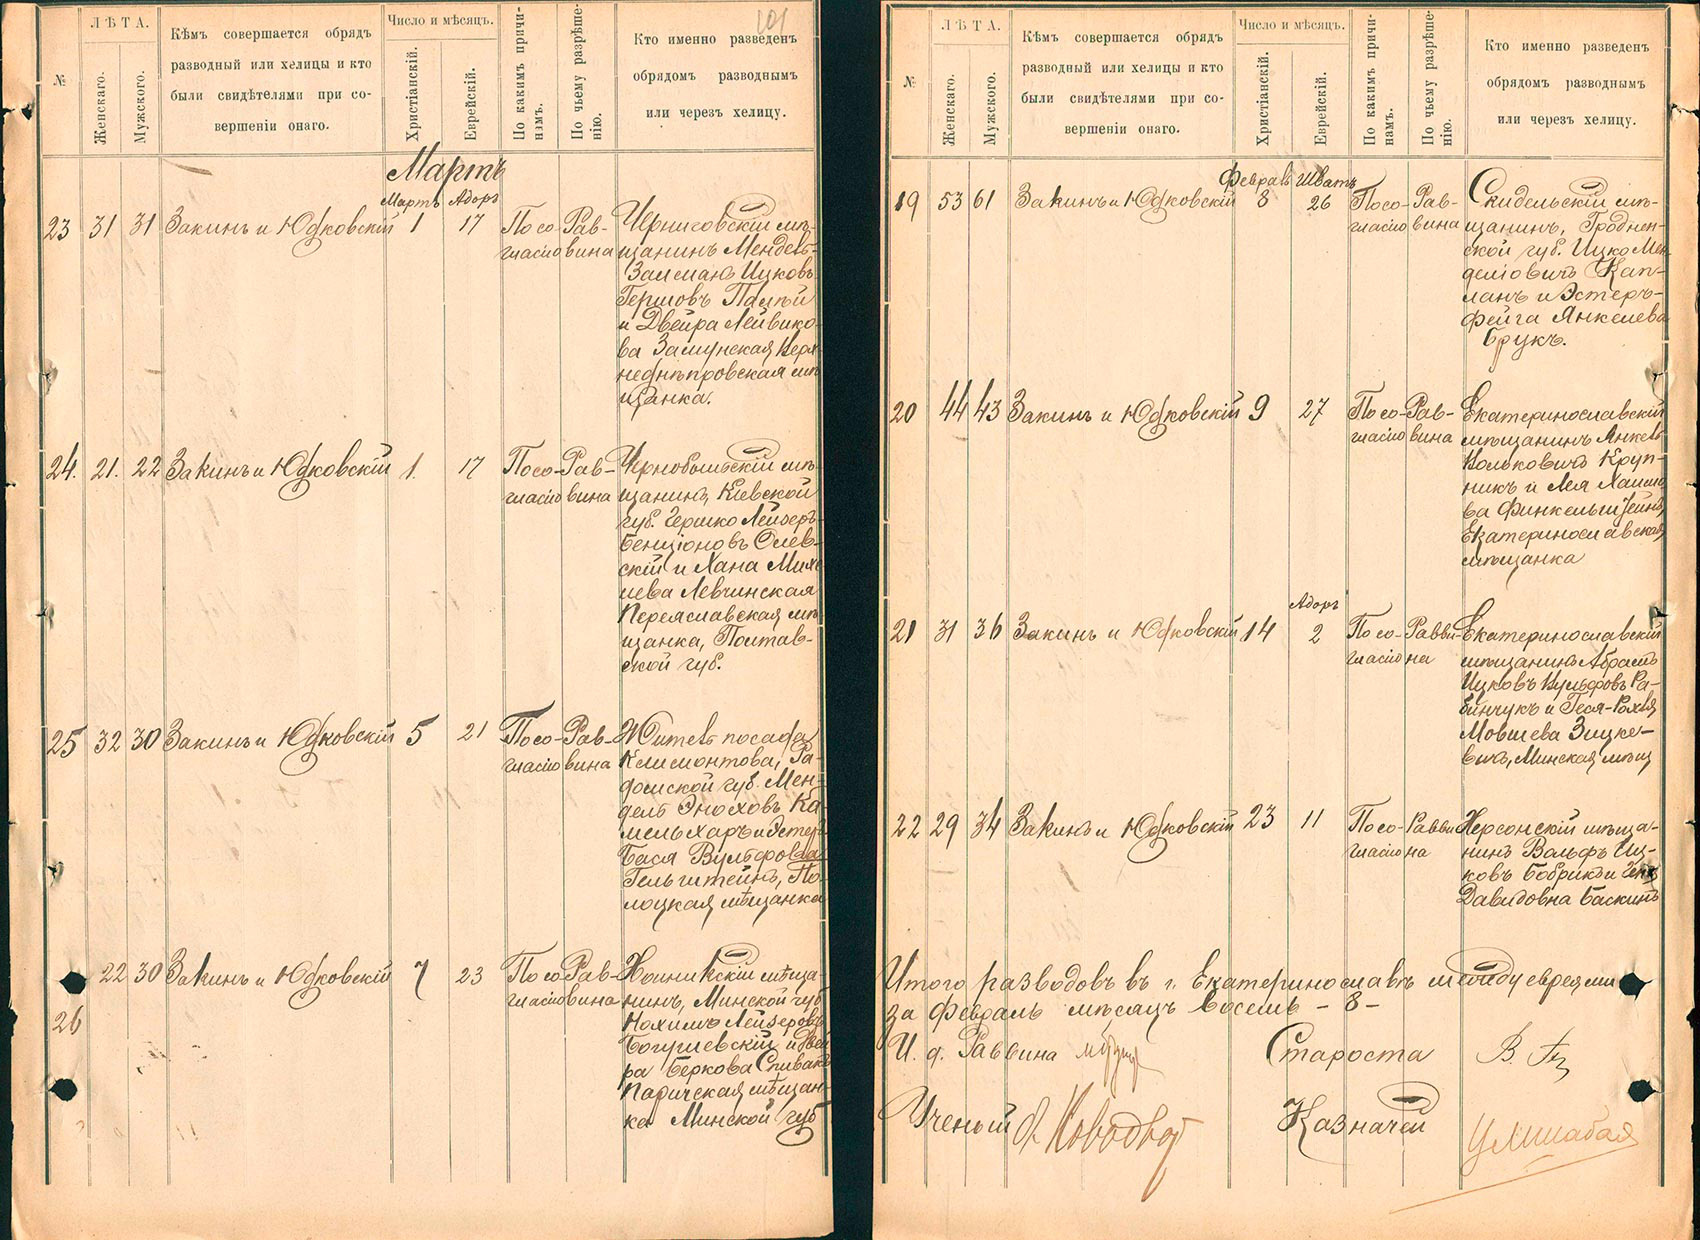 101
№
ЛѢТА.
Женскаго.
Мужскаго.
Кѣмъ совершается обрядъ
разводный или хелицы и кто
были свидѣтелями при со-
вершеніи онаго.
Число и мѣсяцъ.
Христіанскій.
Еврейскій.
По какимъ причи-
намъ.
По чьему разрѣше-
нію.
Кто именно разведенъ
обрядомъ разводнымъ
или черезъ хелицу.
Мартъ
Мартъ Адоръ
23 31 31 Закинъ и Юдковскій 1 17 По со- Рав-
гласію вина
Черниговскій мѣ-
щанинъ Мендель-
Залманъ Ицковъ
Гершовъ
и Двейра Лейвико-
ва Заслунская Верх-
неднѣпровская мѣ-
щанка.
24. 21. 22 Закинъ и Юдковскій 1. 17 По со- Рав-
гласію вина
Чернобыльскій мѣ-
щанинъ, Кіевской
губ. Гершко Лейзеръ-
Бенціоновъ Олев-
скій и Хана Мих-
лева Левчинская
Переяславская мѣ-
щанка, Полтав-
ской губ.
25 32 30 Закинъ и Юдковскій 5 21 По со- Рав-
гласію вина
Житель посада
Климонтова, Ра-
домской губ. Мен-
дель Эноховъ Ка-
мельхаръ и Эстеръ
Бася Вульфова
Гельштейнъ, По-
лоцкая мѣщанка
26 22 30 Закинъ и Юдковскій 7 23 По со Рав-
гласію вина
Хойникскій мѣща-
нинъ, Минской губ
Нохимъ Лейзеровъ
Богушевскій и Двей
ра Беркова Спивакъ
Паричская мѣщан-
ка Минской губ
№
ЛѢТА.
Женскаго.
Мужскаго.
Кѣмъ совершается обрядъ
разводный или хелицы и кто
были свидѣтелями при со-
вершеніи онаго.
Число и мѣсяцъ.
Христіанскій.
Еврейскій.
По какимъ причи-
намъ.
По чьему разрѣше-
нію.
Кто именно разведенъ
обрядомъ разводнымъ
или черезъ хелицу.
Февраль Шватъ
19 53 61 Закинъ и Юдковскій 8 26 По со- Рав-
гласію вина
Скидельскій мѣ-
щанинъ, Гроднен-
ской губ. Ицко Мен
деліовичъ Кап-
ланъ и Эстеръ-
Фейга Янкелева
Брукъ.
20 44 43 Закинъ и Юдковскій 9 27 По со- Рав-
гласію вина
Екатеринославскій
мѣщанинъ Янкель
Нолькович Круп-
никъ и Лея Хаимо
ва Финкельштейнъ,
Екатеринославская
мѣщанка
Адоръ
21 31 36 Закинъ и Юдковскій 14 2 По со- Равви-
гласію на
Екатеринославскій
мѣщанинъ Абрамъ
Ицковъ Вульфовъ Ра-
бинчукъ и Геся-Рохля
Мовшева Зицке-
вичъ, Минская мѣщ
22 29 34 Закинъ и Юдковскій 23 11 По со- Равви
гласію на
Херсонскій мѣща-
нинъ Вольфъ Иц-
ковъ Бобрикъ и Геня
Давидовна Баскинъ
Итого разводовъ въ г. Екатеринославѣ между евреями
за Февраль мѣсяцъ восемь - 8 -
И. д. Раввина
Староста
Ученый
Казначей